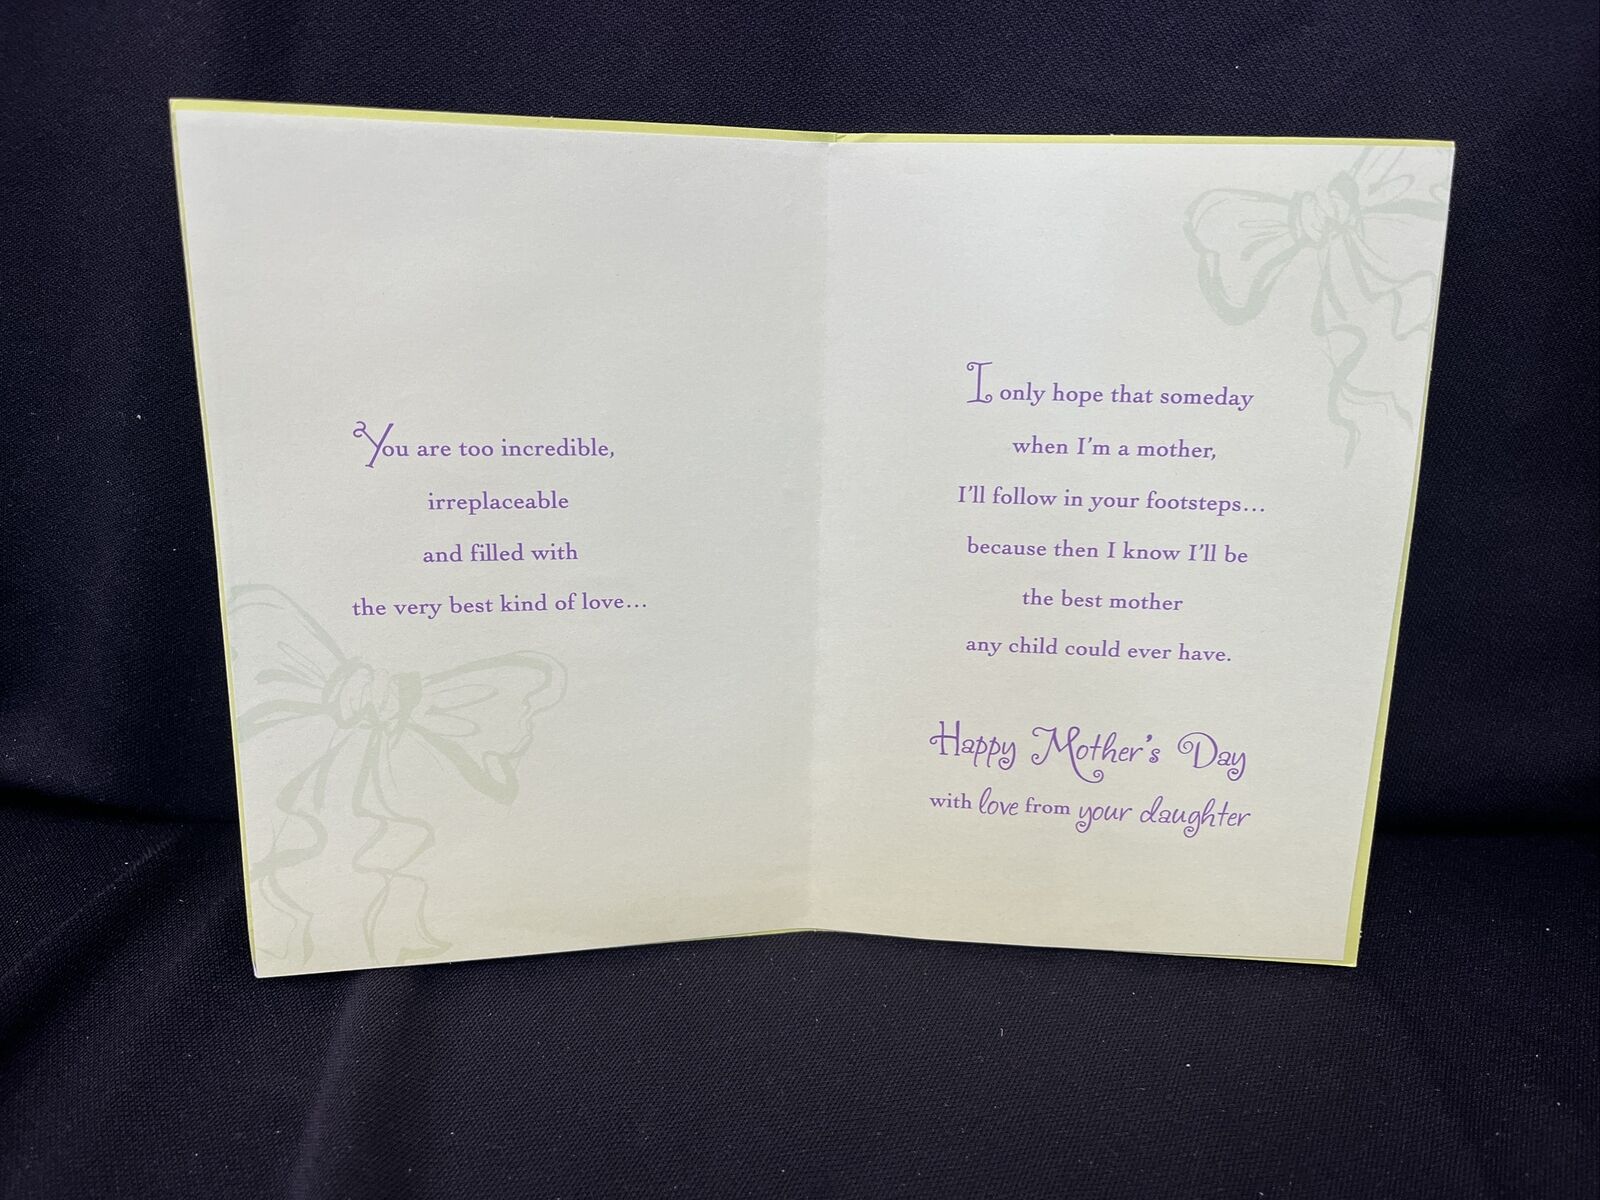 You are too incredible,
irreplaceable
and filled with
the very best kind of love...
I only hope that someday
when I'm a mother,
I'll follow in your footsteps...
because then I know I'll be
the best mother
any child could ever have.
Happy Mother's Day
with love from your daughter